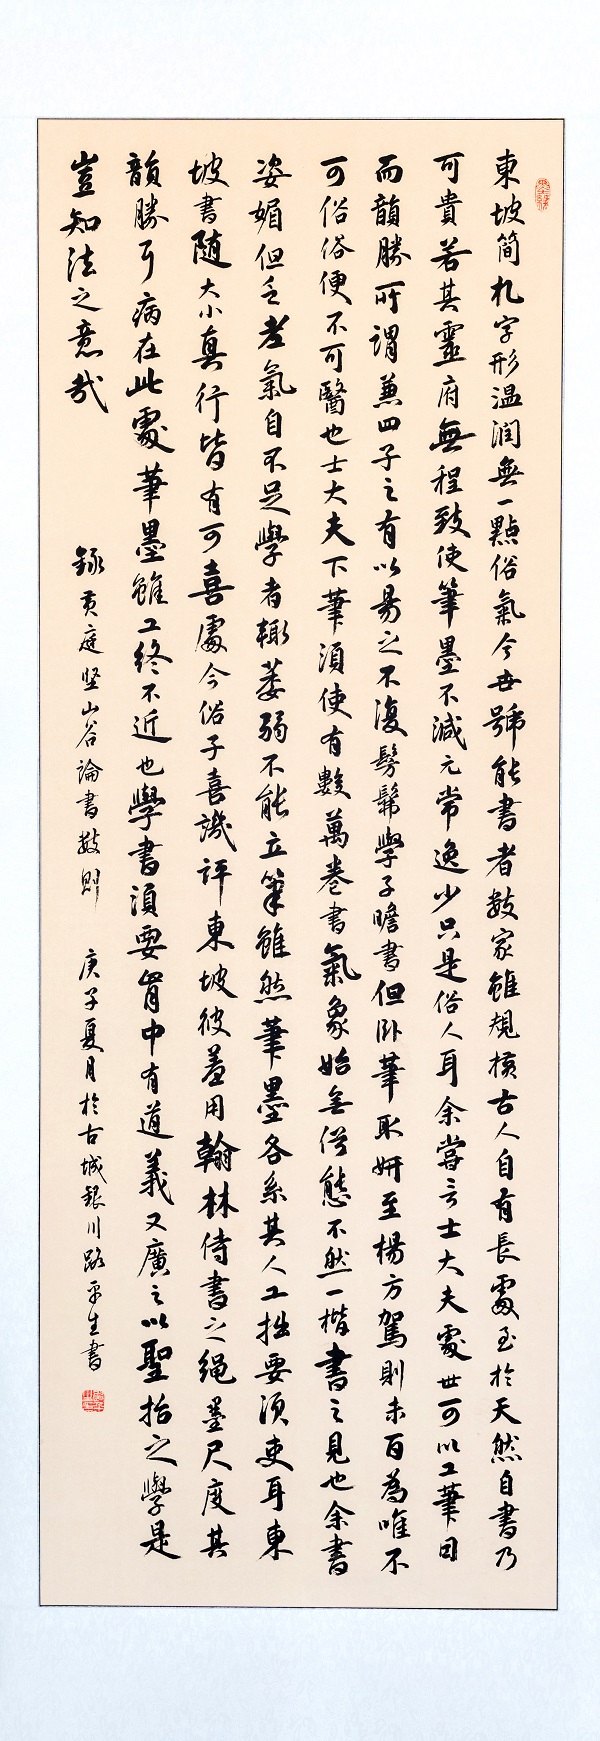 東坡简札字形温润無一點俗氣今世號能書者数家雖規横古人自有長處至於天然自書乃
可貴若其靈府無程致使筆墨不減元常逸少只是俗人耳余嘗言士大夫處世可以工筆日
而韻勝所謂兼四子之有以易之不復髣髴學子瞻書但卧筆取妍至楊方駕則未百為唯不
可俗俗便不可醫也士大夫下筆須使有數萬卷書氣象始無俗態不然一楷書之見也余書
姿媚但乏老氣自不足學者輒萎弱不能立筆雖然筆墨各系其人工拙要须更耳東
坡書随大小真行皆有可喜處今俗子喜譏评東坡彼盖用翰林侍書之绳墨尺度其
韻勝耳病在此處筆墨雖工终不近也學書須要胷中有道義又廣之以聖哲之學是
豈知法之意哉
録黄庭坚山谷論書数則 庚子夏月於古城銀川路平生書